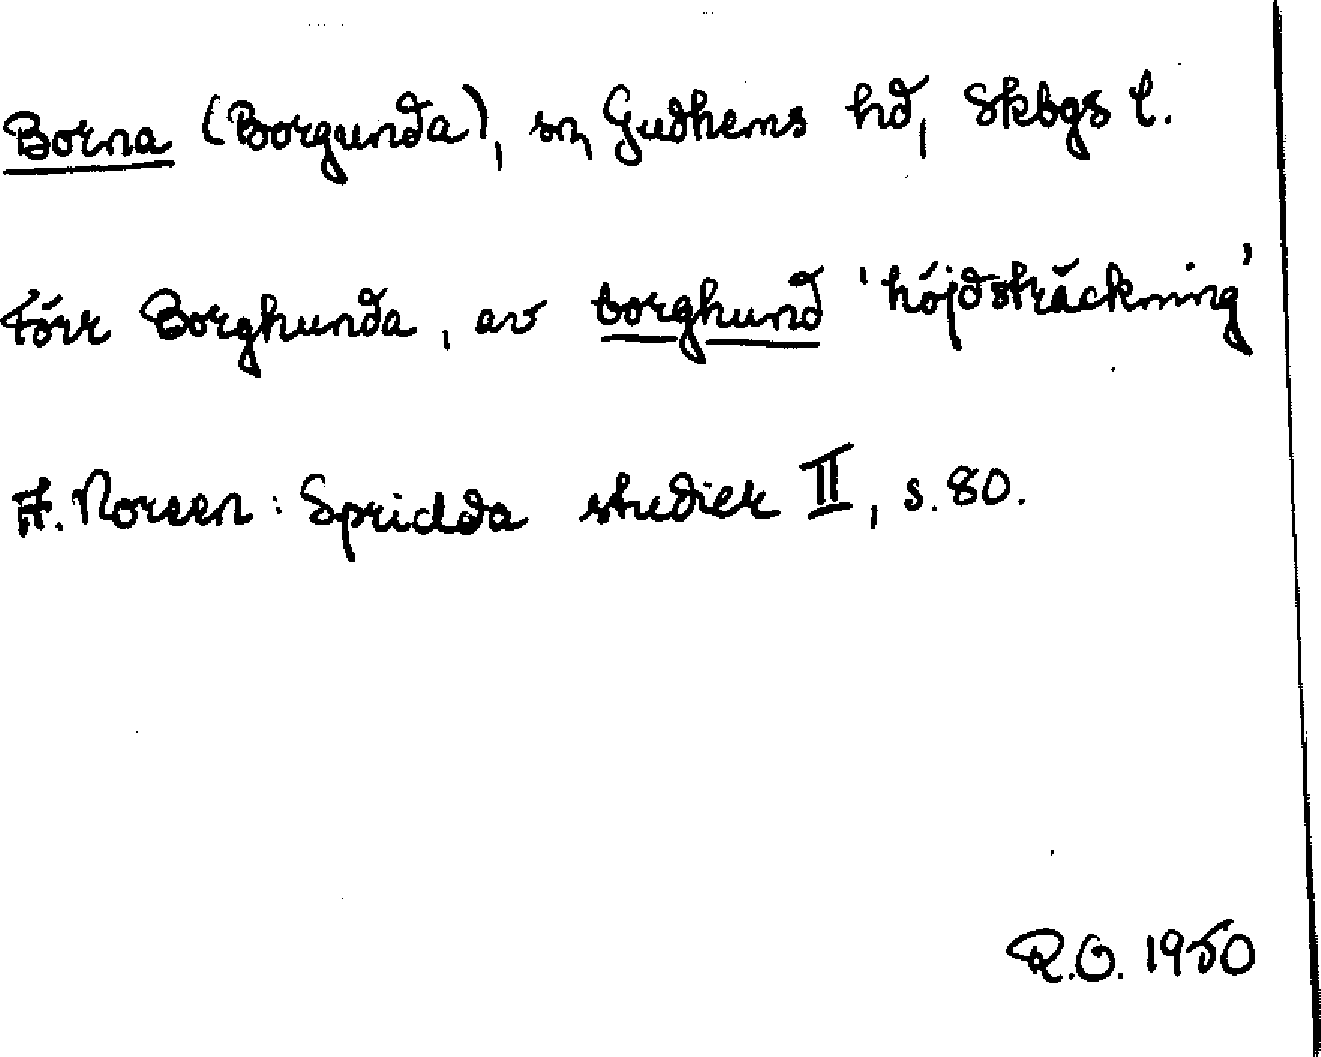 Borna (Borgunda), sn, Gudhems hd, Skbgs l.
Förr Borghunda, av borghund 'höjdsträckning'
A. Noreen: Spridda studier II, s. 80.
R.O. 1950